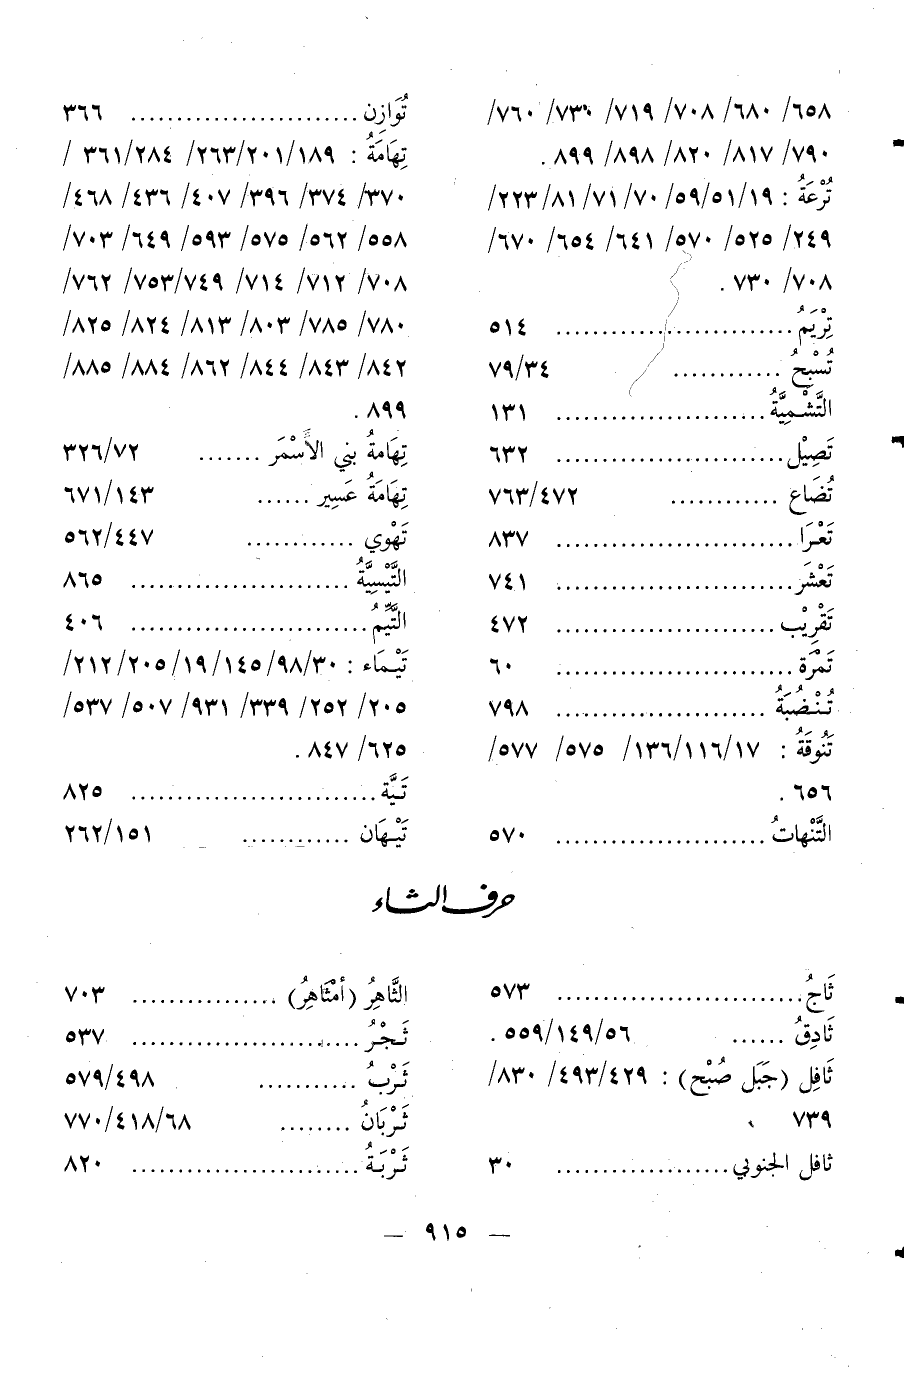 ٦٥٨/ ٦٨٠/ ٧٠٨/ ٧١٩/ ٧٣٠/ ٧٦٠/
٧٩٠/ ٨١٧/ ٨٢٠/ ٨٩٨/ ٨٩٩ .
تُرْعَةُ : ١٩/٥١/٥٩/ ٧٠/ ٧١/ ٨١/ ٢٢٣/
٢٤٩/ ٥٢٥/ ٥٧٠/ ٦٤١/ ٦٥٤/ ٦٧٠/
٧٠٨/ ٧٣٠ .
تِرْيَمُ .......................... ٥١٤
تُسْبِحُ ............ ٧٩/٣٤
التَّسْمِيَّةُ ....................... ١٣١
تَصِيْل ......................... ٦٣٢
تُضَاع ............ ٧٦٣/٤٧٢
تَعْرَا .......................... ٨٣٧
تَعْشَر .......................... ٧٤١
تَقْرِيْب ........................ ٤٧٢
تَمْرَة .......................... ٦٠
تُنْضُبَةُ ....................... ٧٩٨
تَنُوقَةُ : ١٧/١١٦/١٣٦/ ٥٧٥/ ٥٧٧/
٦٥٦ .
التَّنْهاتُ ....................... ٥٧٠
تُوَازِن ......................... ٣٦٦
تِهَامَةُ : ١٨٩/٢٠١/٢٦٣/ ٢٨٤/٣٦١ /
٣٧٠/ ٣٧٤/ ٣٩٦/ ٤٠٧/ ٤٣٦/ ٤٦٨/
٥٥٨/ ٥٦٢/ ٥٧٥/ ٥٩٣/ ٦٤٩/ ٧٠٣/
٧٠٨/ ٧١٢/ ٧١٤/ ٧٤٩/٧٥٣/ ٧٦٢/
٧٨٠/ ٧٨٥/ ٨٠٣/ ٨١٣/ ٨٢٤/ ٨٢٥/
٨٤٢/ ٨٤٣/ ٨٤٤/ ٨٦٢/ ٨٨٤/ ٨٨٥/
٨٩٩ .
تِهَامةُ بني الأَسْمَر ....... ٣٢٦/٧٢
تِهَامَةُ عَسِير ...... ٦٧١/١٤٣
تَهْوي ............ ٥٦٢/٤٤٧
التَّيْسِيَّةُ ........................ ٨٦٥
التَّيِّمُ .......................... ٤٠٦
تَيْمَاء : ٣٠/٩٨/١٤٥/١٩/ ٢٠٥/ ٢١٢/
٢٠٥/ ٢٥٢/ ٣٣٩/ ٩٣١/ ٥٠٧/ ٥٣٧/
٦٢٥/ ٨٤٧ .
تَيَّة ........................... ٨٢٥
تَيْهَان ............ ٢٦٢/١٥١
حرف الثاء
ثَاجُ ........................... ٥٧٣
ثَادِقُ ...... ٥٦/١٤٩/٥٥٩ .
ثَافِل (جَبَل صُبْح) : ٤٢٩/٤٩٣/ ٨٣٠/
٧٣٩ .
ثافل الجنوبي ................... ٣٠
الثَّاهِرُ (أمثَاهِرُ) ................ ٧٠٣
ثَجْرُ ......................... ٥٣٧
ثَرْبُ ........... ٥٧٩/٤٩٨
ثَرْبَانُ ........ ٧٧٠/٤١٨/٦٨
ثَرْبَةُ ......................... ٨٢٠
— ٩١٥ —